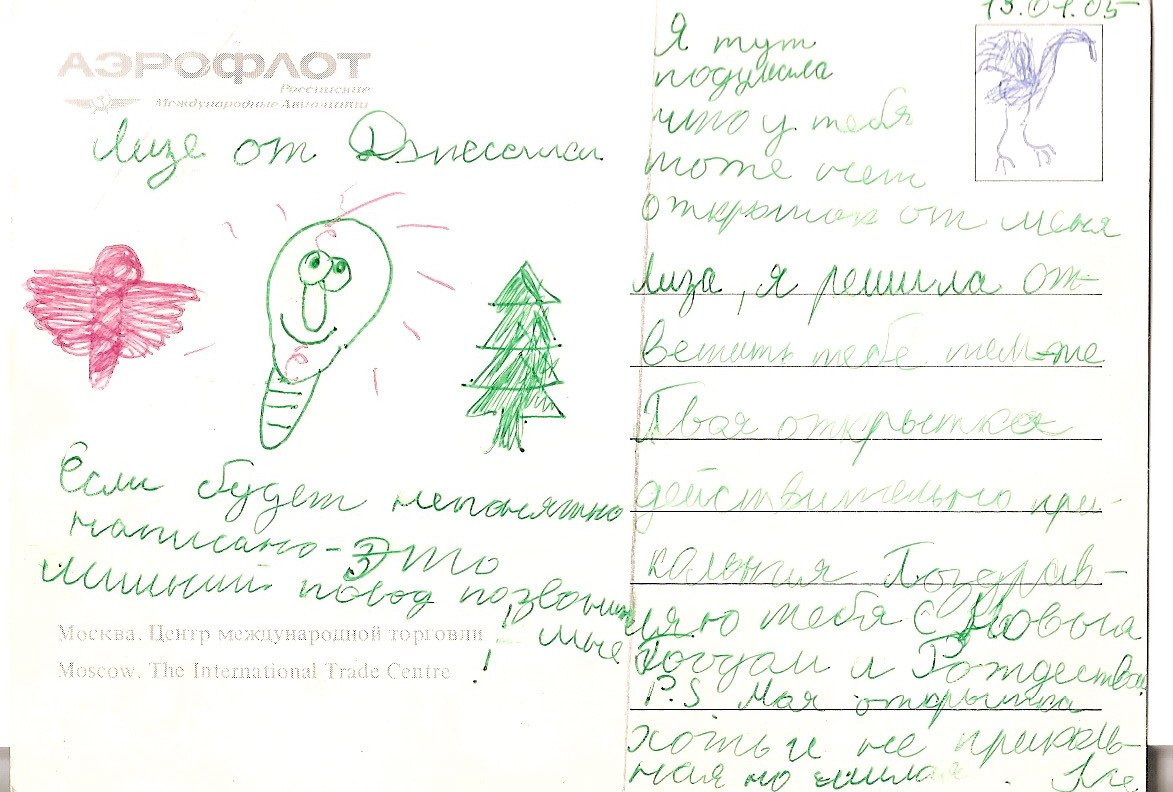 АЭРОФЛОТ
Российские
Международные Авиалинии
Лизе от
Если будет непонятно
написано - это
лишний повод позвонить
мне
!
Москва. Центр международной торговли
Moscow. The International Trade Centre
13.01.05
Я тут
подумала
что у тебя
тоже нет
открыток от меня
Лиза, я решила от-
ветить тебе тем-же
Твоя открытка
действительно при-
кольная Поздрав-
ляю тебя с Новым
Годом и Рождеством
P.S Моя открытка
хоть и не приколь-
ная но милая.